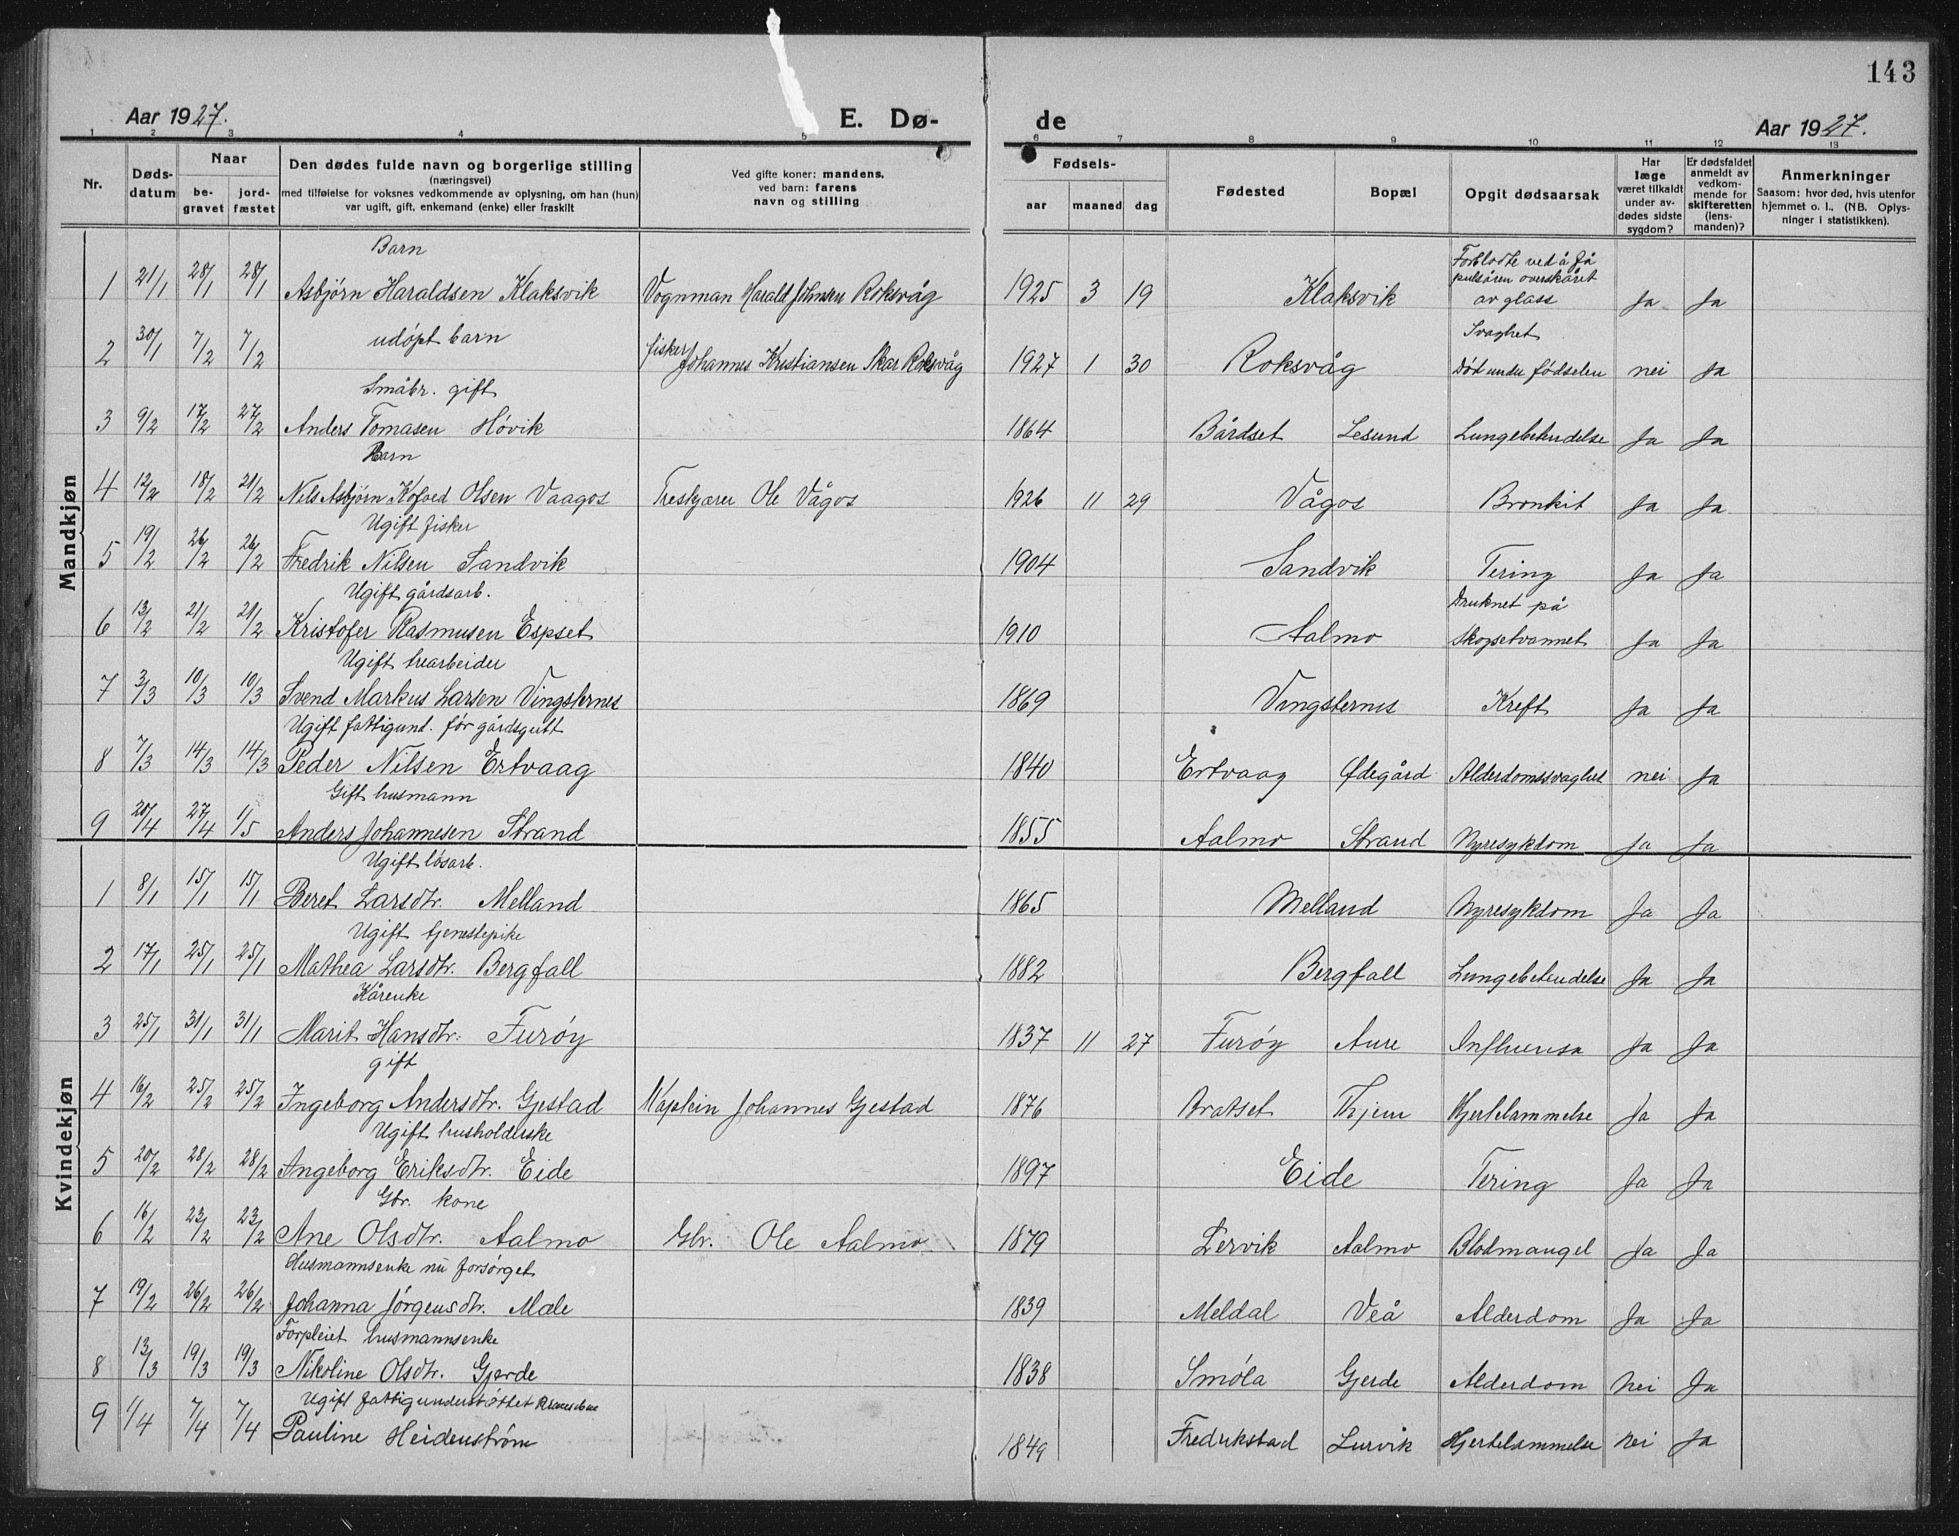 143
Aar 1927.
E. Dø-
de
Aar 1927.
1 2 3 4 5 6 7 8 9 10 11 12 13
Nr.
Døds-
datum
Naar
be-
gravet
jord-
fæstet
Den dødes fulde navn og borgerlige stilling
(næringsvei)
med tilføielse for voksnes vedkommende av oplysning, om han (hun)
var ugift, gift, enkemand (enke) eller fraskilt
Ved gifte koner: mandens,
ved barn: farens
navn og stilling
Fødsels-
aar maaned dag
Fødested
Bopæl
Opgit dødsaarsak
Har
læge
været tilkaldt
under av-
dødes sidste
sygdom?
Er dødsfaldet
anmeldt av
vedkom-
mende for
skifteretten
(lens-
manden)?
Anmerkninger
Saasom: hvor død, hvis utenfor
hjemmet o. l., (NB. Oplys-
ninger i statistikken).
Mandkjøn
Barn
Forblødte ved å få
pulsåren overskåret
av glass
1 21/1 28/1 28/1 Asbjørn Haraldsen Klaksvik Vognman Harald Johnsen Roksvåg 1925 3 19 Klaksvik Ja Ja
udøpt barn
Svaghet
2 30/1 7/2 7/2 fisker Johannes Kristiansen Skar Roksvåg 1927 1 30 Roksvåg Død under fødselen nei Ja
Småbr. gift
3 9/2 17/2 27/2 Anders Tomasen Høvik 1864 Bårdset Lesund Lungebetendelse Ja Ja
Barn
4 12/2 18/2 21/2 Nils Asbjørn Kofoed Olsen Vaagos Treskjærer Ole Vågos 1926 11 29 Vågos Bronkit Ja Ja
Ugift fisker
5 19/2 26/2 26/2 Fredrik Nilsen Sandvik 1904 Sandvik Tering Ja Ja
Ugift gårdsarb.
Druknet på
6 13/2 21/2 21/2 Kristofer Rasmusen Espset 1910 Aalmo Skogsetvannet Ja Ja
Ugift trearbeider
7 3/3 10/3 10/3 Svend Markus Larsen Vingsternes 1869 Vingsternes Kreft Ja Ja
Ugift fattigunt. før gårdsgutt
8 7/3 14/3 14/3 Peder Nilsen Ertvaag 1840 Ertvaag Ødegård Alderdomssvaghet nei Ja
Gift husmann
9 20/4 27/4 1/5 Anders Johannesen Strand 1855 Aalmo Strand Nyresykdom Ja Ja
Kvindekjøn
Ugift løsarb.
1 8/1 15/1 15/1 Beret Larsdtr. Melland 1865 Melland Nyresykdom Ja Ja
Ugift tjenestepike
2 17/1 25/1 25/1 Mathea Larsdtr. Bergfall 1882 Bergfall Lungebetendelse Ja Ja
Kårenke
3 25/1 31/1 31/1 Marit Hansdtr. Furøy 1837 11 27 Furøy Aure Influensa Ja Ja
gift
4 16/2 25/2 25/2 Ingeborg Andersdtr. Gjestad Kaptein Johannes Gjestad 1876 Aratset Tkjem Hjertelammelse Ja Ja
Ugift husholderske
5 20/2 28/2 28/2 Ingeborg Eriksdtr. Eide 1897 Eide Tering Ja Ja
Gbr. kone
6 16/2 23/2 23/2 Ane Olsdtr. Aalmo Gbr. Ole Aalmo 1879 Lervik Aalmo Blodmangel Ja Ja
Husmannsenke nu forsørget
7 19/2 26/2 26/2 Johanna Jørgensdtr. Mæle 1839 Meldal Veå Alderdom Ja Ja
Forpleiet husmannsenke
8 13/3 19/3 19/3 Nikoline Olsdtr. Gjerde 1838 Smøla Gjerde Alderdom Nei Ja
Ugift fattigunderstøttet
9 1/4 7/4 7/4 Pauline Heidenstrøm 1849 Fredrikstad Lurvik Hjertelammelse Nei Ja